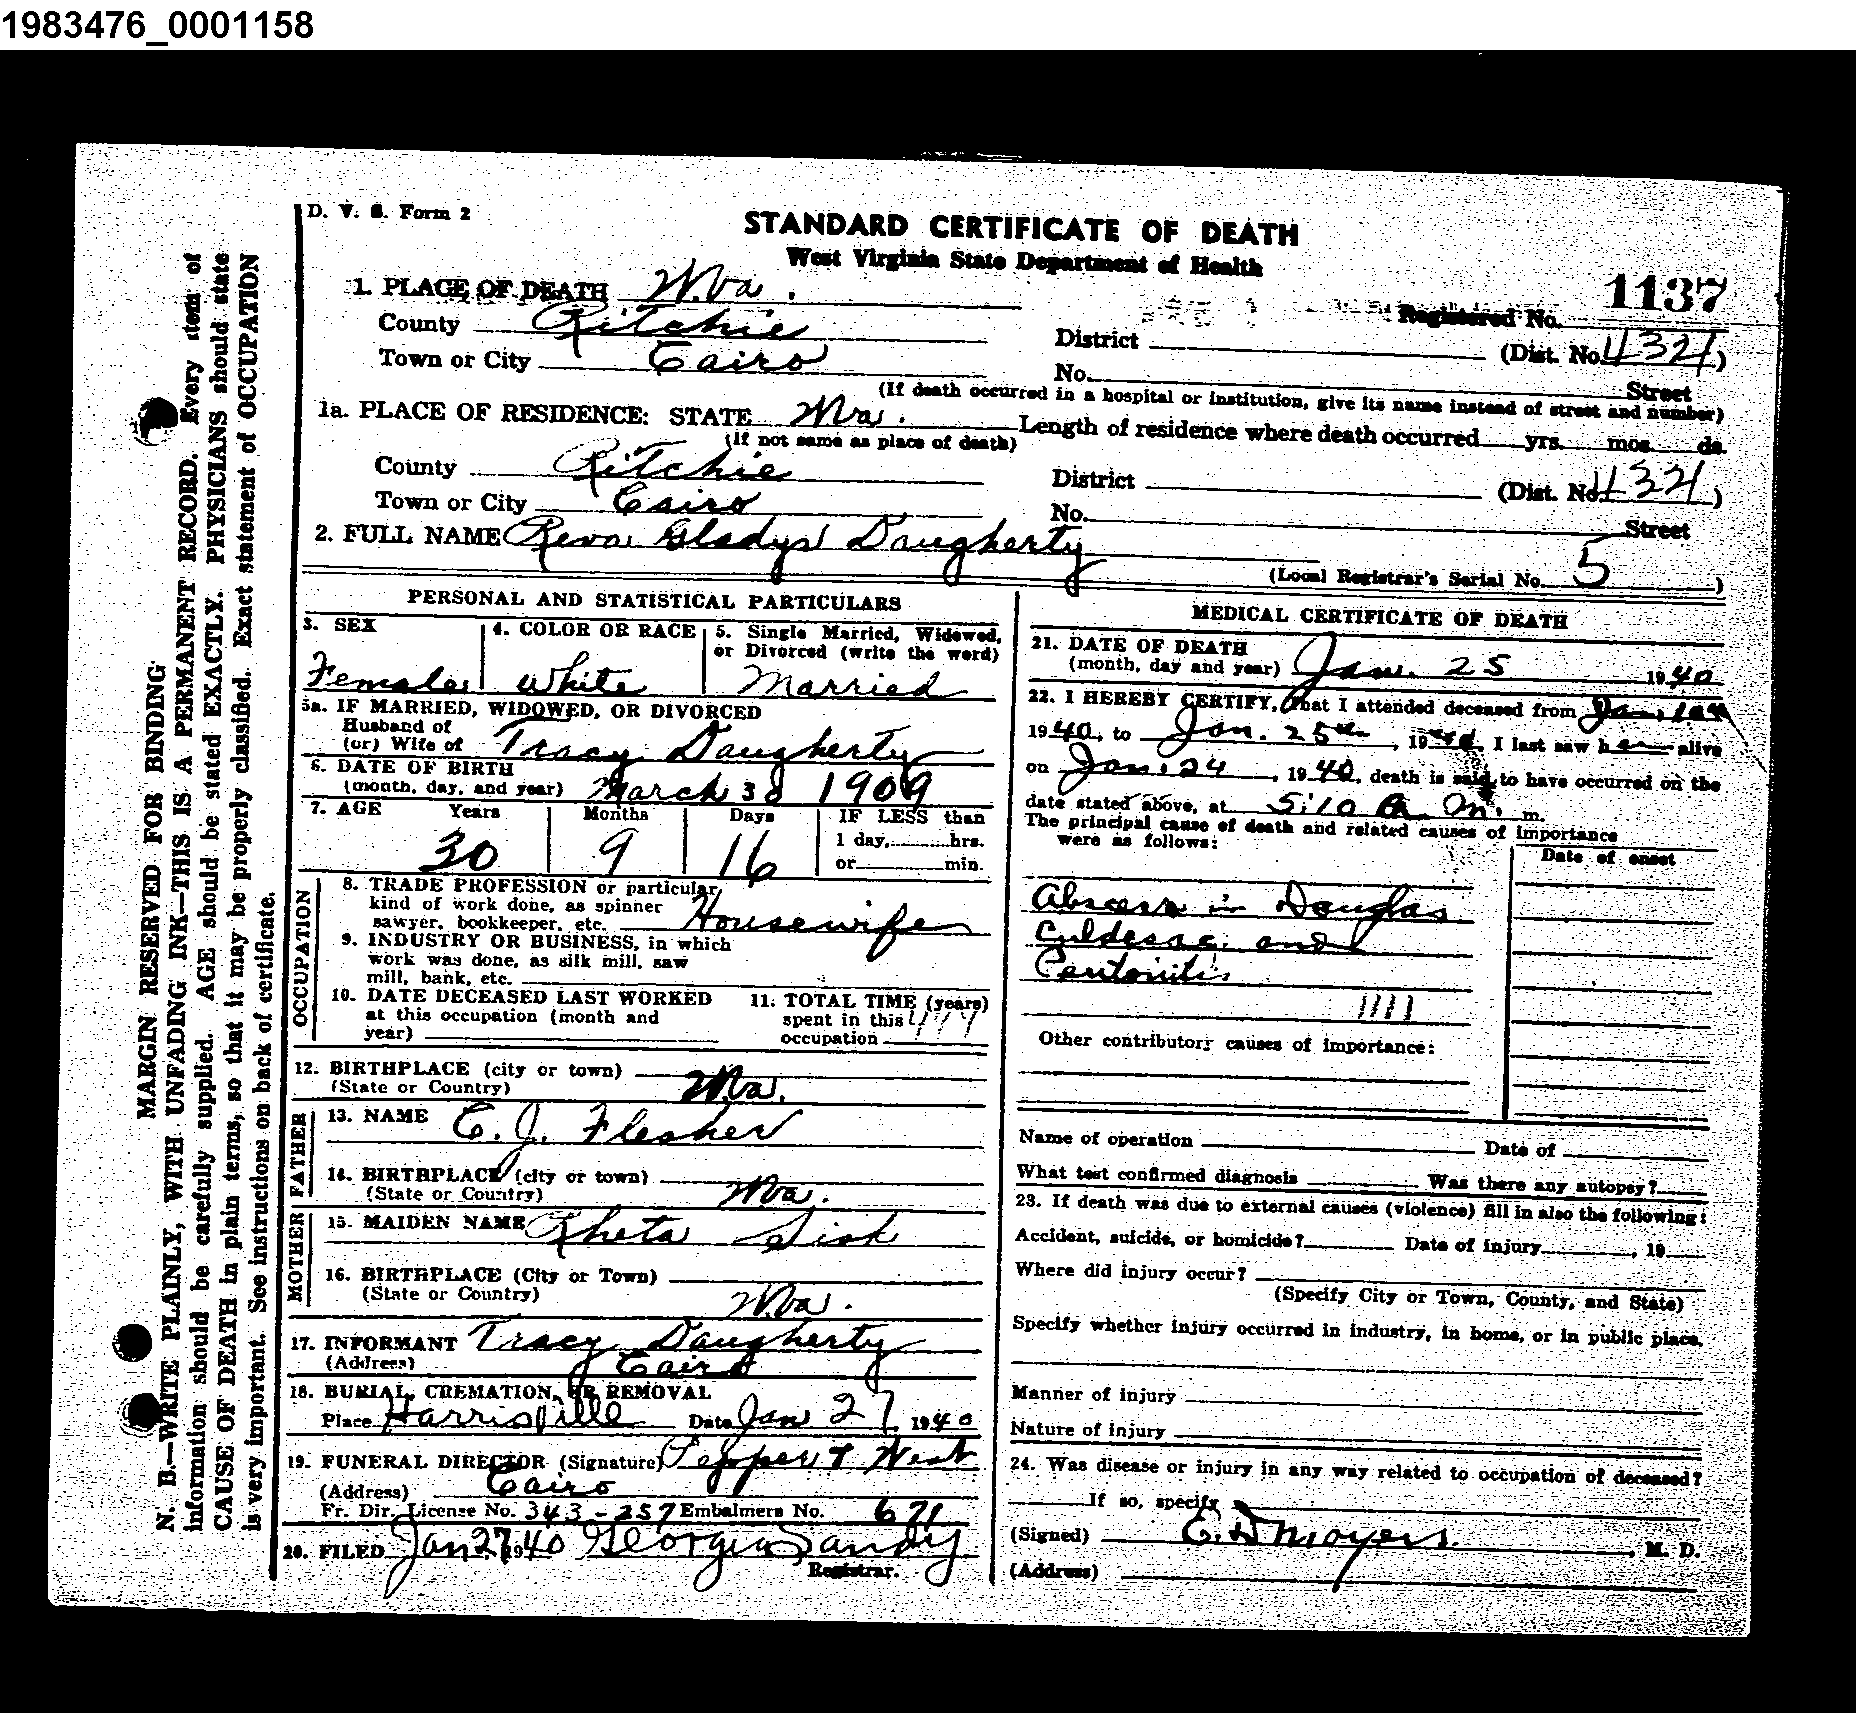 1983476_0001158
D. V. S. Form 2
STANDARD CERTIFICATE OF DEATH
West Virginia State Department of Health
1137
1. PLACE OF DEATH W.Va.
Registered No.
County Ritchie
District (Dist. No. 4321)
Town or City Cairo
No. Street
(If death occurred in a hospital or institution, give its name instead of street and number)
1a. PLACE OF RESIDENCE: STATE W.Va.
(If not same as place of death)
Length of residence where death occurred yrs. mos. ds.
County Ritchie
District (Dist. No. 4321)
Town or City Cairo
No. Street
2. FULL NAME Reva Gladys Daugherty
(Local Registrar's Serial No. 5)
PERSONAL AND STATISTICAL PARTICULARS
3. SEX
Female
4. COLOR OR RACE
White
5. Single Married, Widowed,
or Divorced (write the word)
Married
5a. IF MARRIED, WIDOWED, OR DIVORCED
Husband of
(or) Wife of Tracy Daugherty
6. DATE OF BIRTH
(month, day, and year) March 1909
7. AGE Years Months Days IF LESS than
30 9 16 1 day, hrs.
or min.
OCCUPATION
8. TRADE PROFESSION or particular
kind of work done, as spinner
sawyer, bookkeeper, etc. Housewife
9. INDUSTRY OR BUSINESS, in which
work was done, as silk mill, saw
mill, bank, etc.
10. DATE DECEASED LAST WORKED
at this occupation (month and
year)
11. TOTAL TIME (years)
spent in this
occupation
12. BIRTHPLACE (city or town)
(State or Country) W.Va.
FATHER
13. NAME C. J. Flesher
14. BIRTHPLACE (city or town)
(State or Country) W.Va.
MOTHER
15. MAIDEN NAME Rheta Sisk
16. BIRTHPLACE (City or Town)
(State or Country) W.Va.
17. INFORMANT Tracy Daugherty
(Address) Cairo
18. BURIAL, CREMATION, OR REMOVAL
Place Harrisville Date Jan 27, 1940
19. FUNERAL DIRECTOR (Signature) & West
(Address) Cairo
Fr. Dir. License No. 343-257 Embalmers No. 671
20. FILED Jan 27 1940 Georgia Sandy
Registrar.
MEDICAL CERTIFICATE OF DEATH
21. DATE OF DEATH
(month, day and year) Jan. 25 1940
22. I HEREBY CERTIFY, that I attended deceased from Jan.
1940, to Jan. 25th, 1940. I last saw her alive
on Jan. 24, 1940, death is said to have occurred on the
date stated above, at 5:10 A. M. m.
The principal cause of death and related causes of importance
were as follows:
Date of onset
Abscess in Douglas
Culdesac and
Peritonitis
1111
Other contributory causes of importance:
Name of operation Date of
What test confirmed diagnosis Was there any autopsy?
23. If death was due to external causes (violence) fill in also the following:
Accident, suicide, or homicide? Date of injury, 19
Where did injury occur?
(Specify City or Town, County, and State)
Specify whether injury occurred in industry, in home, or in public place.
Manner of injury
Nature of injury
24. Was disease or injury in any way related to occupation of deceased?
If so, specify
(Signed) E. D. Moyers, M. D.
(Address)
MARGIN RESERVED FOR BINDING
N. B.—WRITE PLAINLY, WITH UNFADING INK—THIS IS A PERMANENT RECORD. Every item of
information should be carefully supplied. AGE should be stated EXACTLY. PHYSICIANS should state
CAUSE OF DEATH in plain terms, so that it may be properly classified. Exact statement of OCCUPATION
is very important. See instructions on back of certificate.